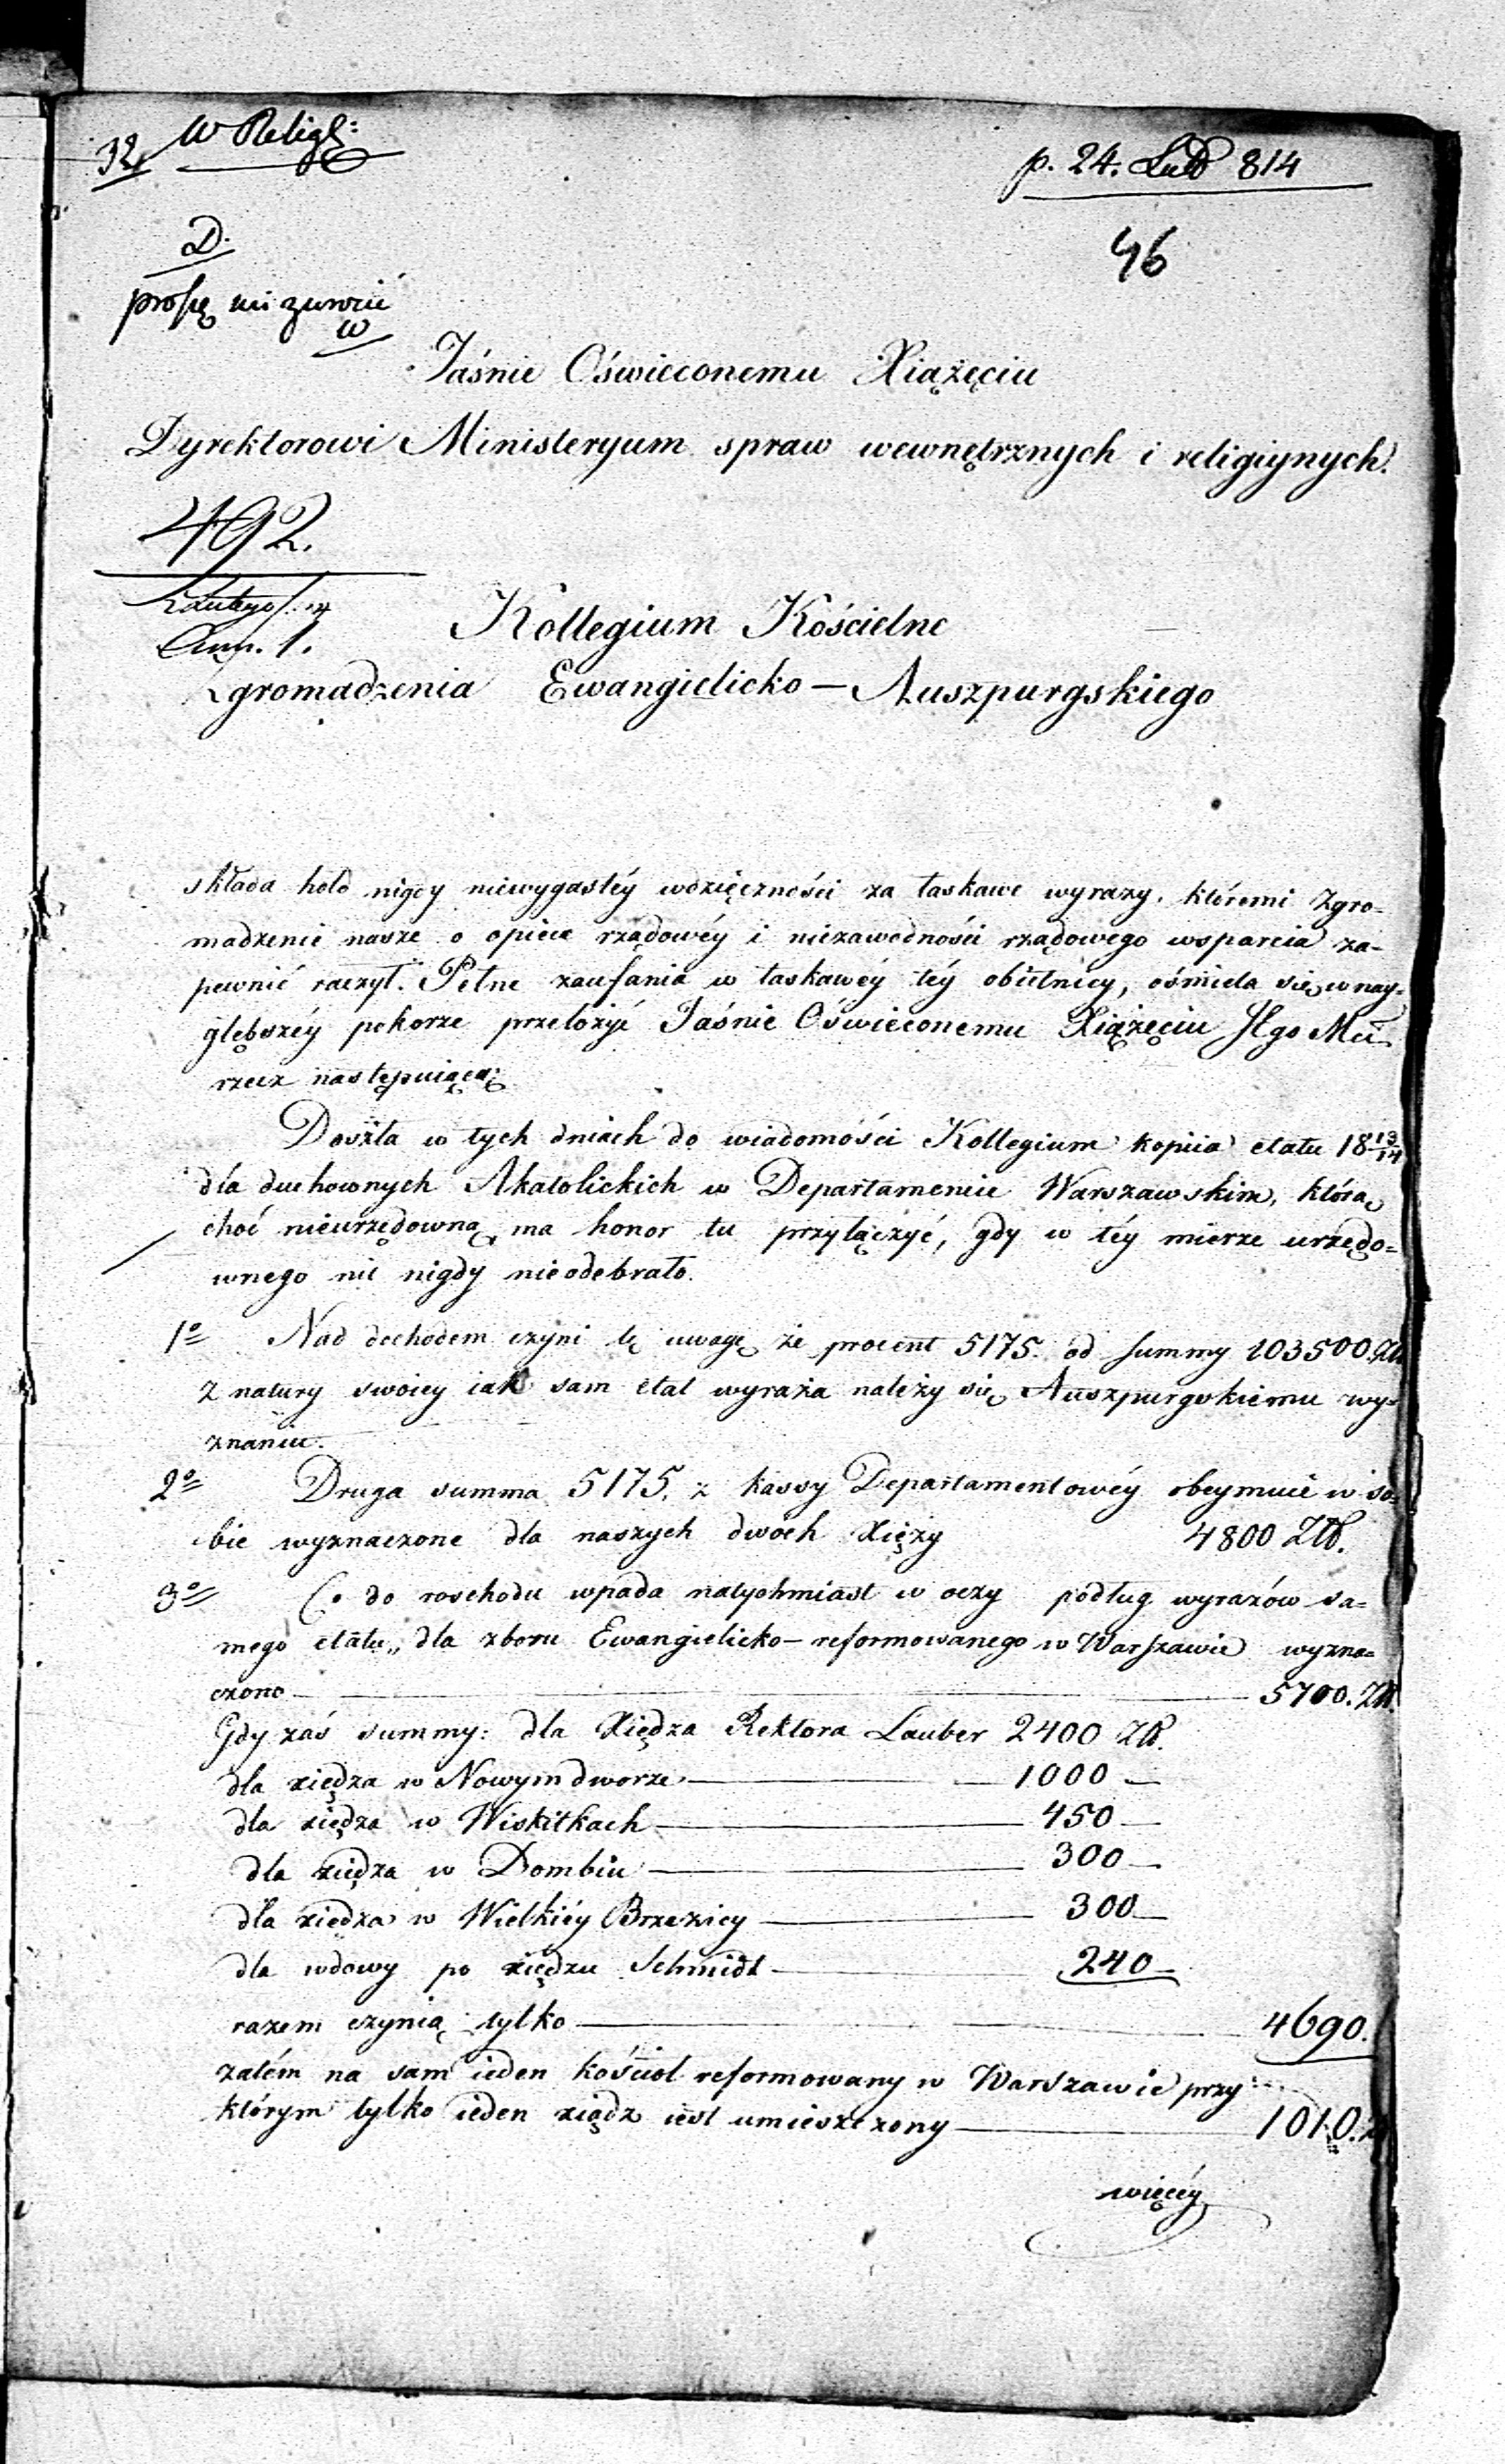 32, W Relig:
p. 24. Lut 814
46
D.
proszę mi zwrócić
W
Jaśnie Oświeconemu Xiążęciu
Dyrektorowi Ministeryum spraw wewnętrznych i religiynych.
492.
Lutego
Ann. 1.
Kollegium Kościelne
Zgromadzenia Ewangielicko — Auszpurgskiego
składa hołd nigdy niewygasłéy wdzięczności za łaskawe wyrazy, któremi Zgro-
madzenie nasze o opiece rządowéy i niezawodności rządowego wsparcia za-
pewnić raczył. Pełne zaufania w łaskawéy téy obietnicy, ośmiela się w nay-
głębszéy pokorze przełożyć Jaśnie Oświeconemu Xiążęciu JEgo Mci
rzecz następuiącą:
Doszła w tych dniach do wiadomości Kollegium kopiia etatu 18 13/14
dla duchownych Akatolickich w Departamencie Warszawskim, którą
choć nieurzędowną, ma honor tu przyłączyć, gdy w téy mierze urzędo=
wnego nic nigdy nieodebrało.
1º Nad dochodem czyni tę uwagę że procent 5175. od summy 103500. Zł
z natury swoiey iak sam etat wyraża należy się Auszpurgskiemu wy=
znaniu.
2º Druga summa 5175. z kassy Departamentowéy obeymuie w so=
bie wyznaczone dla naszych dwóch Xięży 4800 Złt.
3º Co do roschodu wpada natychmiast w oczy podług wyrazów sa=
mego etatu „ dla zboru Ewangielicko — reformowanego w Warszawie wyzna=
czono — 5700. Złt.
Gdy zaś summy: dla Xiędza Rektora Lauber 2400 Złt.
dla xiędza w Nowymdworze — 1000 —
dla xiędza w Wiskitkach — 450 —
dla xiędza w Dombiu — 300 —
dla xiędza w Wielkiéy Brzezicy — 300 —
dla wdowy po xiędzu Schmidt — 240 —
razem czynią tylko — 4690.
zatém na sam ieden kościoł reformowany w Warszawie przy
którym tylko ieden xiądz iest umieszczony — 1010. Z
więcéy